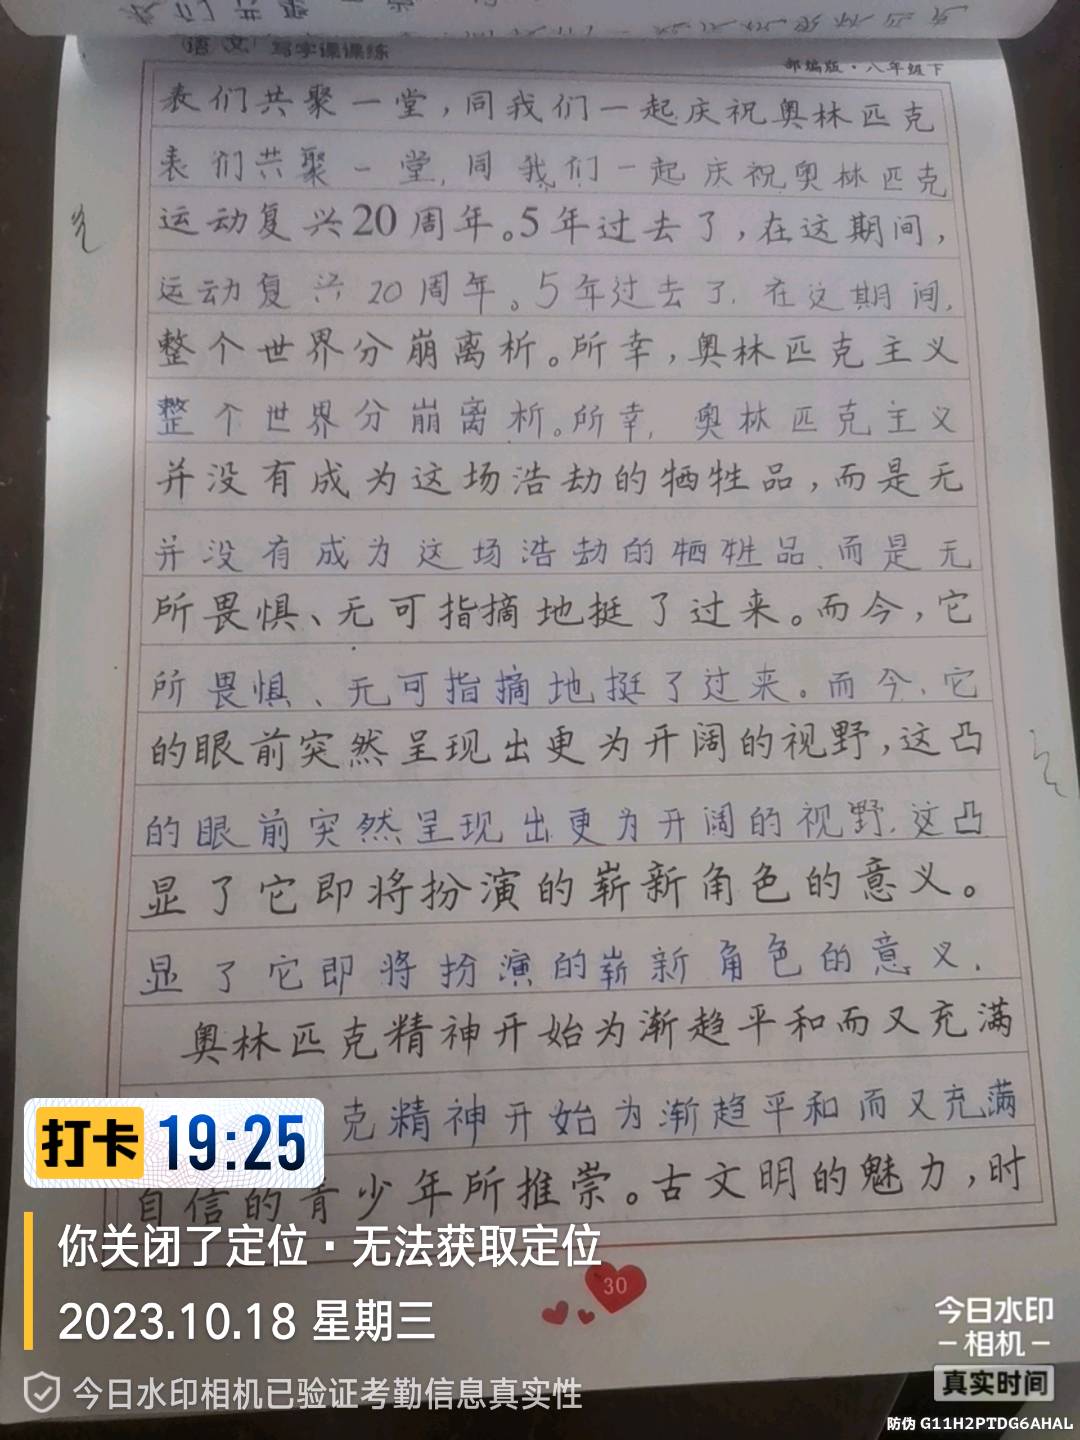 语文 写字课课练
部编版·八年级下
表们共聚一堂，同我们一起庆祝奥林匹克
表们共聚一堂，同我们一起庆祝奥林匹克
运动复兴20周年。5年过去了，在这期间，
运动复兴20周年。5年过去了，在这期间，
整个世界分崩离析。所幸，奥林匹克主义
整个世界分崩离析。所幸，奥林匹克主义
并没有成为这场浩劫的牺牲品，而是无
并没有成为这场浩劫的牺牲品，而是无
所畏惧、无可指摘地挺了过来。而今，它
所畏惧、无可指摘地挺了过来。而今，它
的眼前突然呈现出更为开阔的视野，这凸
的眼前突然呈现出更为开阔的视野，这凸
显了它即将扮演的崭新角色的意义。
显了它即将扮演的崭新角色的意义.
奥林匹克精神开始为渐趋平和而又充满
克精神开始为渐趋平和而又充满
自信的青少年所推崇。古文明的魅力，时
30
打卡 19:25
你关闭了定位·无法获取定位
2023.10.18 星期三
今日水印相机已验证考勤信息真实性
今日水印
-相机-
真实时间
防伪 G11H2PTDG6AHAL